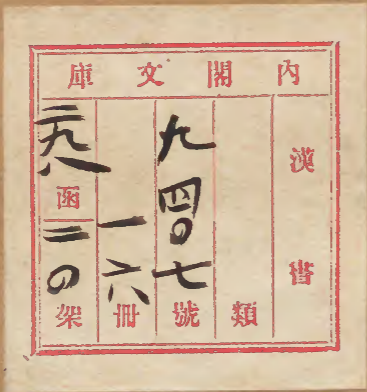 內閣文庫
漢書
類
九四〇七號
一六冊
二九八函
二〇架